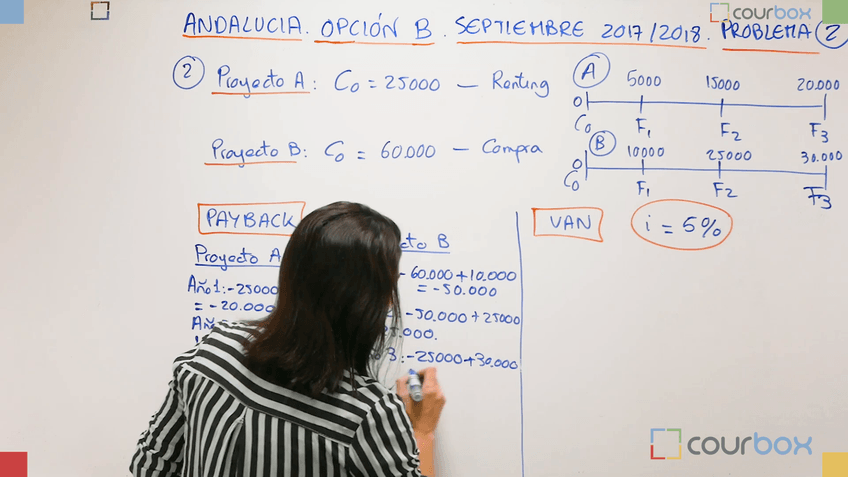 courbox
ANDALUCIA. OPCIÓN B. SEPTIEMBRE 2017/2018. PROBLEMA 2
2 Proyecto A: C0 = 25000 — Renting
Proyecto B: C0 = 60.000 — Compra
A 5000 15000 20.000
0
C0 F1 F2 F3
B 10000 25000 30.000
0
C0 F1 F2 F3
PAYBACK
Proyecto A
Año 1: -25000
= -20.000
B
- 60.000 + 10.000
= -50.000
-50.000 + 25000
3: -25000 + 30.000
VAN i = 5%
courbox